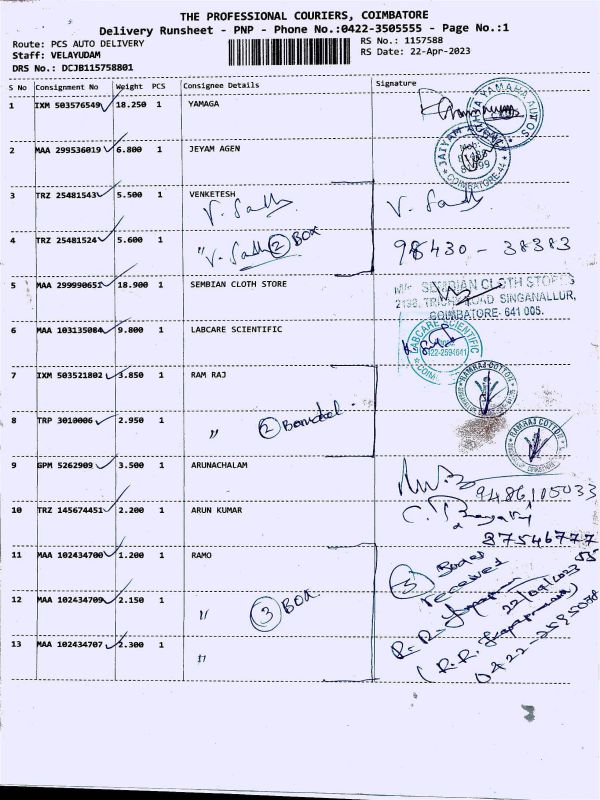 THE PROFESSIONAL COURIERS, COIMBATORE
Delivery Runsheet - PNP - Phone No.:0422-3505555 - Page No.:1
Route: PCS AUTO DELIVERY
Staff: VELAYUDAM
DRS No.: DCJB115758801
RS No.: 1157588
RS Date: 22-Apr-2023
S No Consignment No Weight PCS Consignee Details Signature
1 IXM 503576549 18.250 1 YAMAGA
2 MAA 299536019 6.800 1 JEYAM AGEN
COIMBATORE-44
3 TRZ 25481543 5.500 1 VENKETESH
4 TRZ 25481524 5.600 1 " 2 BOX
98430 - 38383
5 MAA 299990651 18.900 1 SEMBIAN CLOTH STORE
SEMBIAN CLOTH STORES
2198, TRICHY ROAD SINGANALLUR,
COIMBATORE- 641 005.
6 MAA 103135084 9.800 1 LABCARE SCIENTIFIC
LABCARE SCIENTIFIC
0422-2594641
7 IXM 503521802 3.850 1 RAM RAJ
RAMRAJ COTTON
8 TRP 3010006 2.950 1 " 2
RAMRAJ COTTON
9 GPM 5262909 3.500 1 ARUNACHALAM
9486105033
10 TRZ 145674451 2.200 1 ARUN KUMAR
87546777
55
11 MAA 102434700 1.200 1 RAMO
3 Boxes
received
12 MAA 102434709 2.150 1 " 3 BOX
13 MAA 102434707 2.300 1 "